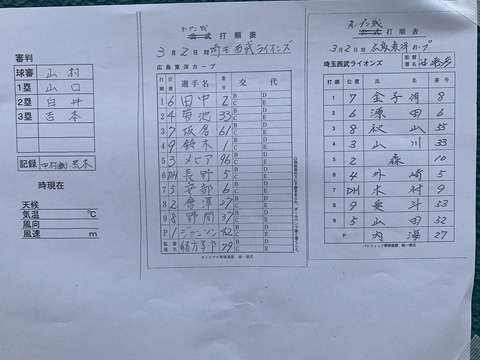 審判
球審 山村
1塁 山口
2塁 白井
3塁 吉本
記録 中村(晃) 荒木
時現在
天候
気温 ℃
風向
風速 m
オープン戦
打順表
3月2日対埼玉西武ライオンズ
広島東洋カープ
打順 位置 選手名 番号 交代
1 6 田中 2 B C D E
2 4 菊池 33 B C D E
3 7 坂倉 61 B C D E
4 9 鈴木 1 B C D E
5 3 メヒア 96 B C D E
6 DH 長野 5 B C D E
7 5 安部 6 B C D E
8 2 會澤 27 B C D E
9 8 野間 37 B C D E
P 1 ジョンソン 42 B C D E
監督署名 緒方孝市 79
セントラル野球連盟 統一様式
オープン戦
打順表
3月2日対広島東洋カープ
埼玉西武ライオンズ 監督署名
打順 位置 氏名 番号
1 7 金子侑 8
2 6 源田 6
3 8 秋山 55
4 3 山川 33
5 2 森 10
6 4 外崎 5
7 DH 木村 9
8 9 愛斗 53
9 5 山田 32
P 内海 27
パシフィック野球連盟 統一様式